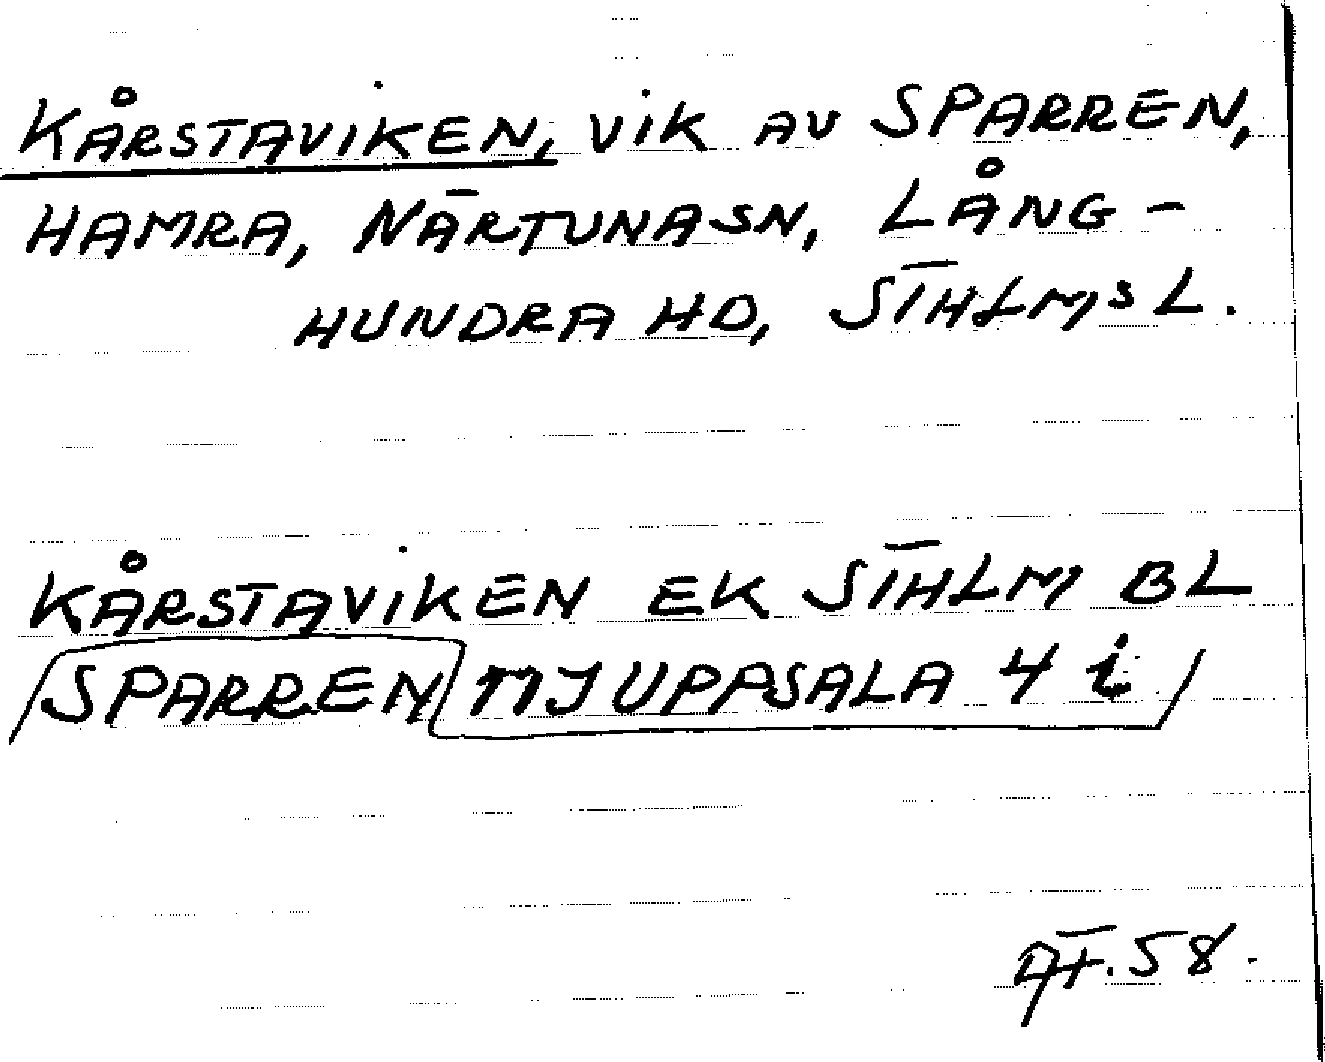 KÅRSTAVIKEN, VIK AV SPARREN,
HAMRA, NÄRTUNA SN, LÅNG-
HUNDRA HD, STHLMS L.
KÅRSTAVIKEN EK STHLM BL
SPARREN MJ UPPSALA 4 i
AF. 58.